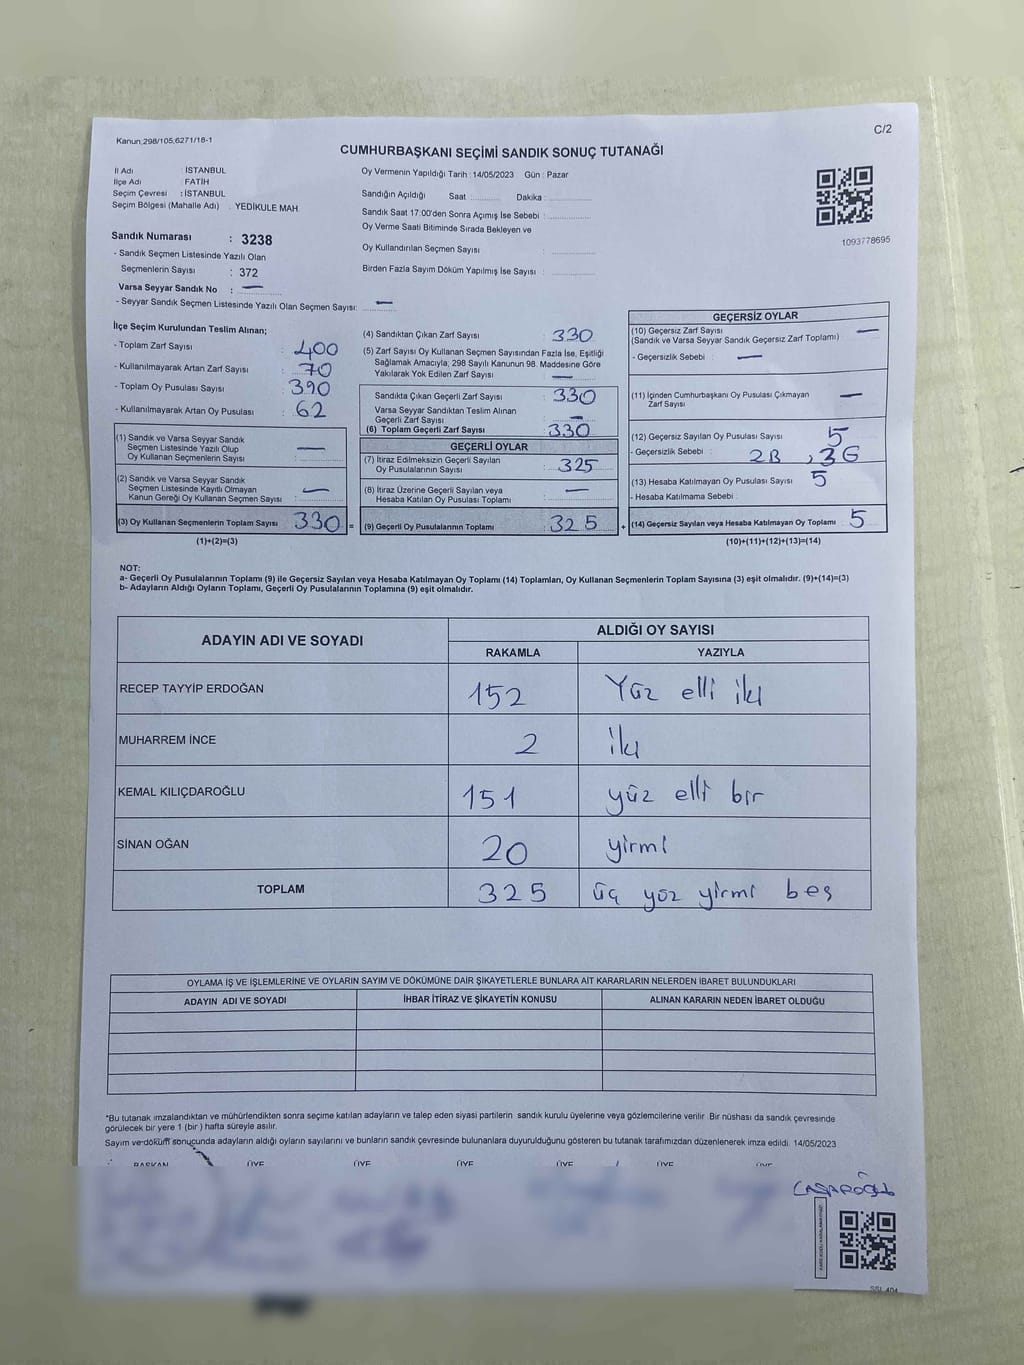 Kanun 298/105,6271/18-1
C/2
CUMHURBAŞKANI SEÇİMİ SANDIK SONUÇ TUTANAĞI
İl Adı : İSTANBUL
İlçe Adı : FATİH
Seçim Çevresi : İSTANBUL
Seçim Bölgesi (Mahalle Adı) : YEDİKULE MAH.
Oy Vermenin Yapıldığı Tarih : 14/05/2023 Gün : Pazar
Sandığın Açıldığı Saat : Dakika :
Sandık Saat 17:00'den Sonra Açımış İse Sebebi :
Oy Verme Saati Bitiminde Sırada Bekleyen ve
Oy Kullandırılan Seçmen Sayısı :
Birden Fazla Sayım Döküm Yapılmış İse Sayısı :
1093778695
Sandık Numarası : 3238
- Sandık Seçmen Listesinde Yazılı Olan
Seçmenlerin Sayısı : 372
Varsa Seyyar Sandık No : —
- Seyyar Sandık Seçmen Listesinde Yazılı Olan Seçmen Sayısı: —
İlçe Seçim Kurulundan Teslim Alınan;
- Toplam Zarf Sayısı : 400
- Kullanılmayarak Artan Zarf Sayısı : 70
- Toplam Oy Pusulası Sayısı : 390
- Kullanılmayarak Artan Oy Pusulası : 62
(1) Sandık ve Varsa Seyyar Sandık
Seçmen Listesinde Yazılı Olup
Oy Kullanan Seçmenlerin Sayısı : —
(2) Sandık ve Varsa Seyyar Sandık
Seçmen Listesinde Kayıtlı Olmayan
Kanun Gereği Oy Kullanan Seçmen Sayısı : —
(3) Oy Kullanan Seçmenlerin Toplam Sayısı : 330 =
(1)+(2)=(3)
(4) Sandıktan Çıkan Zarf Sayısı : 330
(5) Zarf Sayısı Oy Kullanan Seçmen Sayısından Fazla İse, Eşitliği
Sağlamak Amacıyla, 298 Sayılı Kanunun 98. Maddesine Göre
Yakılarak Yok Edilen Zarf Sayısı : —
Sandıkta Çıkan Geçerli Zarf Sayısı : 330
Varsa Seyyar Sandıktan Teslim Alınan
Geçerli Zarf Sayısı : —
(6) Toplam Geçerli Zarf Sayısı : 330
GEÇERLİ OYLAR
(7) İtiraz Edilmeksizin Geçerli Sayılan
Oy Pusulalarının Sayısı : 325
(8) İtiraz Üzerine Geçerli Sayılan veya
Hesaba Katılan Oy Pusulası Toplamı : —
(9) Geçerli Oy Pusulalarının Toplamı : 325 +
GEÇERSİZ OYLAR
(10) Geçersiz Zarf Sayısı —
(Sandık ve Varsa Seyyar Sandık Geçersiz Zarf Toplamı)
- Geçersizlik Sebebi : —
(11) İçinden Cumhurbaşkanı Oy Pusulası Çıkmayan
Zarf Sayısı —
(12) Geçersiz Sayılan Oy Pusulası Sayısı : 5
- Geçersizlik Sebebi : 2B , 3G
(13) Hesaba Katılmayan Oy Pusulası Sayısı : 5
- Hesaba Katılmama Sebebi :
(14) Geçersiz Sayılan veya Hesaba Katılmayan Oy Toplamı : 5
(10)+(11)+(12)+(13)=(14)
NOT:
a- Geçerli Oy Pusulalarının Toplamı (9) ile Geçersiz Sayılan veya Hesaba Katılmayan Oy Toplamı (14) Toplamları, Oy Kullanan Seçmenlerin Toplam Sayısına (3) eşit olmalıdır. (9)+(14)=(3)
b- Adayların Aldığı Oyların Toplamı, Geçerli Oy Pusulalarının Toplamına (9) eşit olmalıdır.
ADAYIN ADI VE SOYADI
ALDIĞI OY SAYISI
RAKAMLA YAZIYLA
RECEP TAYYİP ERDOĞAN 152 Yüz elli iki
MUHARREM İNCE 2 iki
KEMAL KILIÇDAROĞLU 151 yüz elli bir
SİNAN OĞAN 20 yirmi
TOPLAM 325 üç yüz yirmi beş
OYLAMA İŞ VE İŞLEMLERİNE VE OYLARIN SAYIM VE DÖKÜMÜNE DAİR ŞİKAYETLERLE BUNLARA AİT KARARLARIN NELERDEN İBARET BULUNDUKLARI
ADAYIN ADI VE SOYADI İHBAR İTİRAZ VE ŞİKAYETİN KONUSU ALINAN KARARIN NEDEN İBARET OLDUĞU
*Bu tutanak imzalandıktan ve mühürlendikten sonra seçime katılan adayların ve talep eden siyasi partilerin sandık kurulu üyelerine veya gözlemcilerine verilir. Bir nüshası da sandık çevresinde
görülecek bir yere 1 (bir ) hafta süreyle asılır.
Sayım ve döküm sonucunda adayların aldığı oyların sayılarını ve bunların sandık çevresinde bulunanlara duyurulduğunu gösteren bu tutanak tarafımızdan düzenlenerek imza edildi. 14/05/2023
BAŞKAN ÜYE ÜYE ÜYE ÜYE ÜYE ÜYE